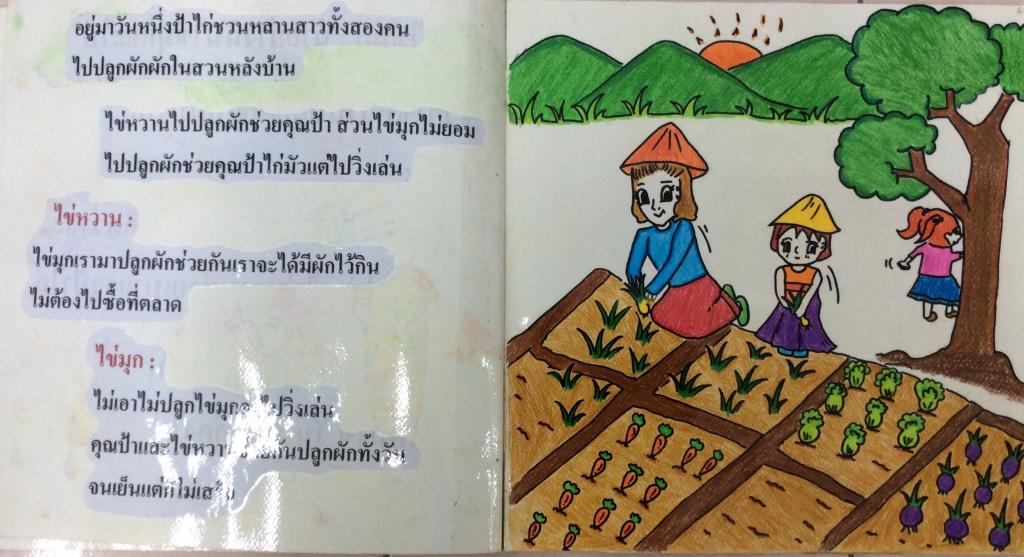 อยู่มาวันหนึ่งป้าไก่ชวนหลานสาวทั้งสองคน
ไปปลูกผักผักในสวนหลังบ้าน
ไข่หวานไปปลูกผักช่วยคุณป้า ส่วนไข่มุกไม่ยอม
ไปปลูกผักช่วยคุณป้าไก่มัวแต่ไปวิ่งเล่น
ไข่หวาน :
ไข่มุกเรามาปลูกผักช่วยกันเราจะได้มีผักไว้กิน
ไม่ต้องไปซื้อที่ตลาด
ไข่มุก :
ไม่เอาไม่ปลูกไข่มุก ไปวิ่งเล่น
คุณป้าและไข่หวาน กันปลูกผักทั้งวัน
จนเย็นแต่ก็ไม่